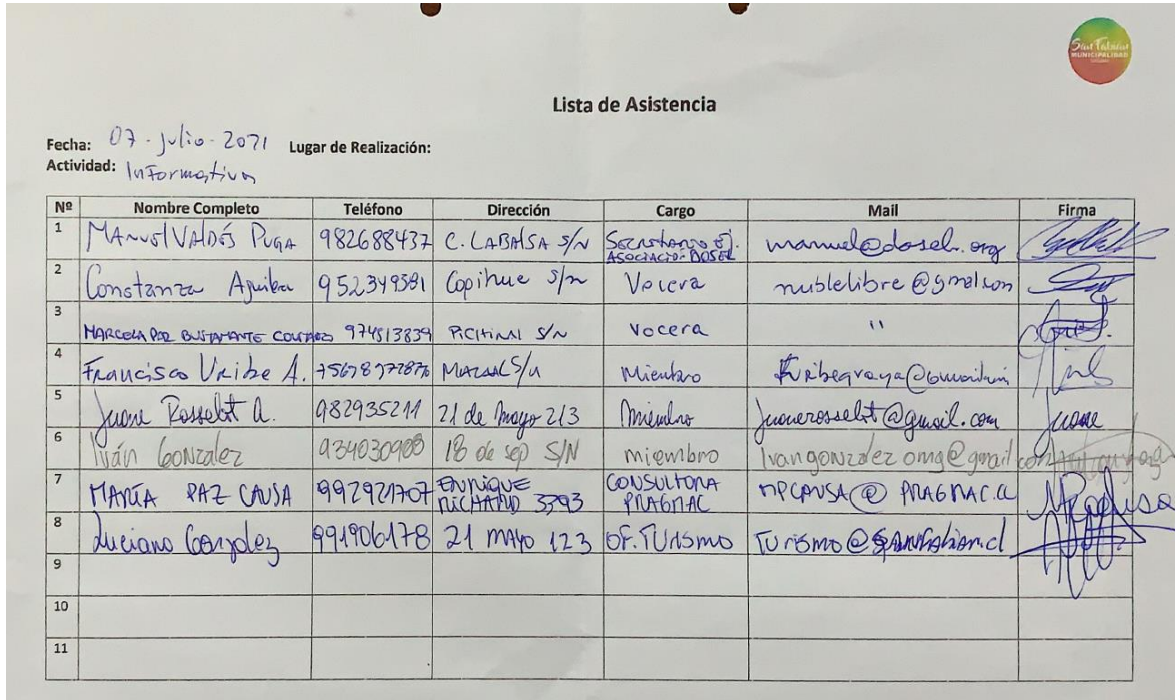 San Fabián
MUNICIPALIDAD
Lista de Asistencia
Fecha: 07-Julio-2021 Lugar de Realización:
Actividad: Informativa
Nº Nombre Completo Teléfono Dirección Cargo Mail Firma
1 MANUEL VALDÉS PUGA 982688437 C. LABALSA S/N Secretario Ej. ASOCIACIÓN DOSEL manuel@dosel.org
2 Constanza 952349591 Copihue s/n Vocera nublelibre@gmail.com
3 MARCELA PAZ BUSTAMANTE 974813839 S/N Vocera "
4 Francisco Uribe A. S/N Miembro
5 Rosselot A. 982935211 21 de Mayo 213 Miembro
6 Iván González 934030908 18 de sep S/N miembro Ivangonzalezomg@gmail.com
7 MARÍA PAZ CAUSA 992921707 ENRIQUE 3393 CONSULTORA PRAGMAC MPCAUSA@PRAGMAC.CL
8 Luciano González 991906178 21 MAYO 123 OF. TURISMO TURISMO@sanfabian.cl
9
10
11